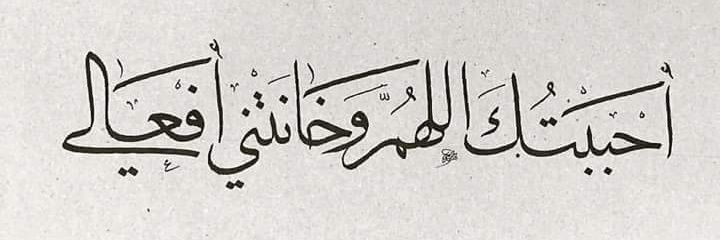 أحببتُكَ اللهمَّ وَخَانَتني أفعَالي